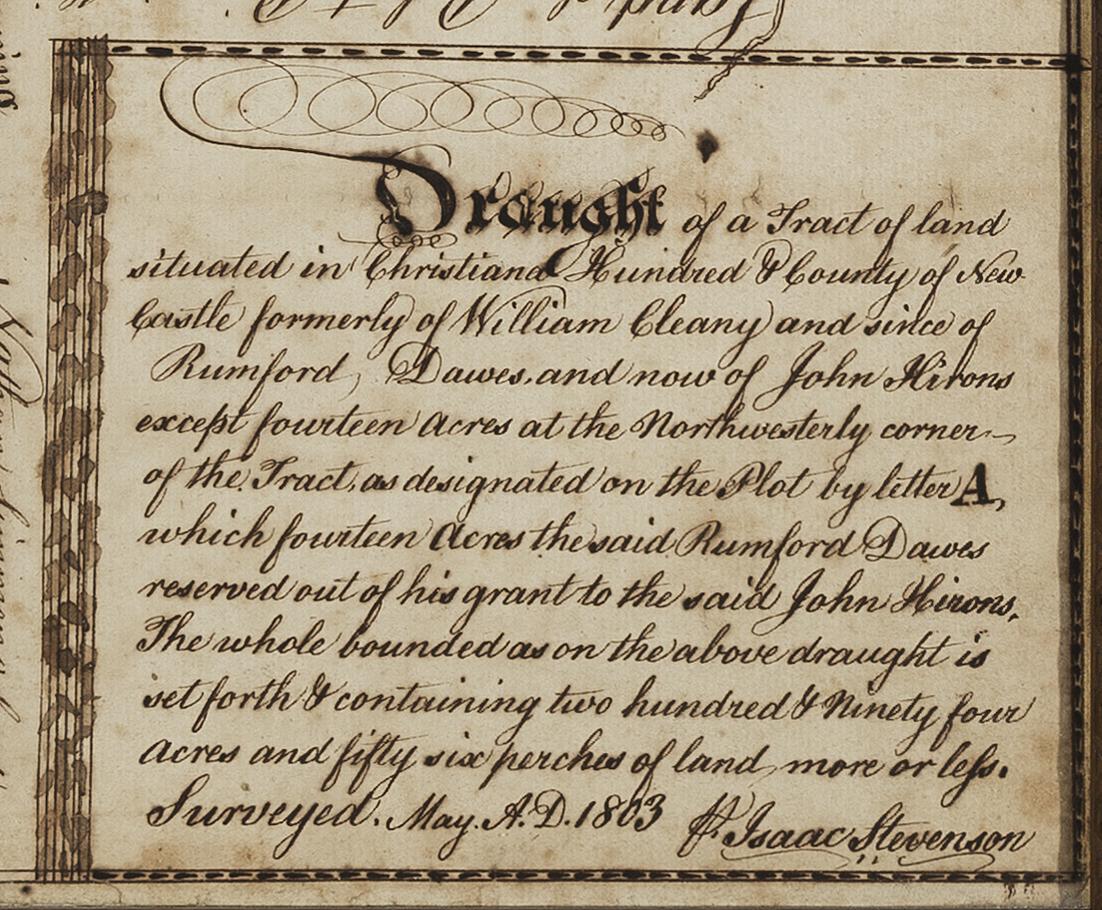 Draught of a Tract of land
situated in Christiana Hundred & County of New
Castle formerly of William Cleany and since of
Rumford Dawes, and now of John Hirons
except fourteen Acres at the Northwesterly corner
of the Tract, as designated on the Plot by letter A,
which fourteen Acres the said Rumford Dawes
reserved out of his grant to the said John Hirons.
The whole bounded as on the above draught is
set forth & containing two hundred & Ninety four
acres and fifty six perches of land, more or leſs.
Surveyed. May. A.D. 1803 Isaac Stevenson